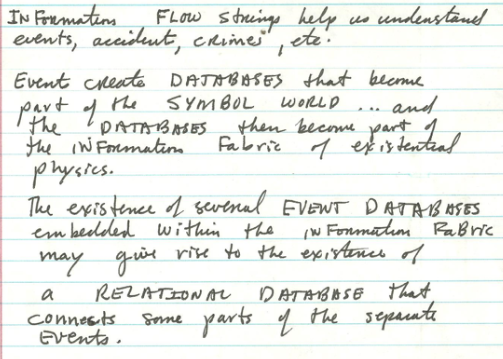 INFormation FLOW strings help us understand
events, accident, crimes, etc.
Event create DATABASES that become
part of the SYMBOL WORLD ... and
the DATABASES then become part of
the INFormation Fabric of existential
physics.
The existence of several EVENT DATABASES
embedded within the INFormation FaBric
may give rise to the existence of
a RELATIONAL DATABASE that
connects some parts of the separate
Events.